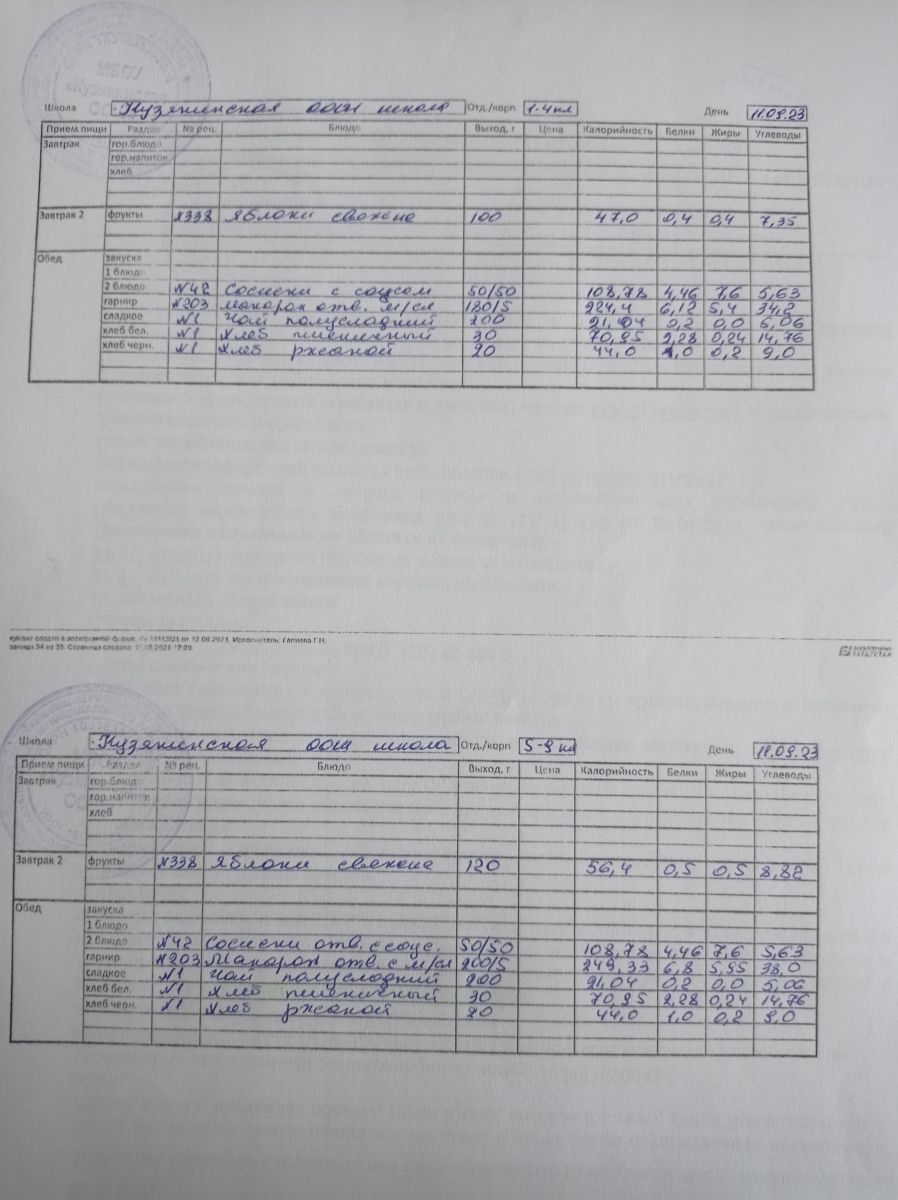 Школа Кузякинская оош школа Отд./корп 1-4 кл День 11.09.23
Прием пищи Раздел № рец. Блюдо Выход, г Цена Калорийность Белки Жиры Углеводы
Завтрак гор.блюдо
гор.напиток
хлеб
Завтрак 2 фрукты №338 Яблоки свежие 100 47,0 0,4 0,4 7,35
Обед закуска
1 блюдо
2 блюдо №42 Сосиски с соусом 50/50 108,78 4,46 7,6 5,63
гарнир №203 Макарон отв. м/сл 180/5 224,4 6,12 5,4 34,2
сладкое №1 Чай полусладкий 200 21,04 0,2 0,0 5,06
хлеб бел. №1 Хлеб пшеничный 30 70,95 2,28 0,24 14,76
хлеб черн. №1 Хлеб ржаной 20 44,0 1,0 0,2 9,0
кумент создан в электронной форме. № от 12.08.2021. Исполнитель: Г.Н.
аница 34 из 35. Страница создана: 11.08.2021 17:09
ТАТАРСТАН
Школа Кузякинская оош школа Отд./корп 5-9 кл День 11.09.23
Прием пищи Раздел № рец. Блюдо Выход, г Цена Калорийность Белки Жиры Углеводы
Завтрак гор.блюдо
гор.напиток
хлеб
Завтрак 2 фрукты №338 Яблоки свежие 120 56,4 0,5 0,5 8,82
Обед закуска
1 блюдо
2 блюдо №42 Сосиски отв. с соус. 50/50 108,78 4,46 7,6 5,63
гарнир №203 Макарон отв. с м/сл 200/5 249,33 6,8 5,95 38,0
сладкое №1 Чай полусладкий 200 21,04 0,2 0,0 5,06
хлеб бел. №1 Хлеб пшеничный 30 70,95 2,28 0,24 14,76
хлеб черн. №1 Хлеб ржаной 20 44,0 1,0 0,2 9,0